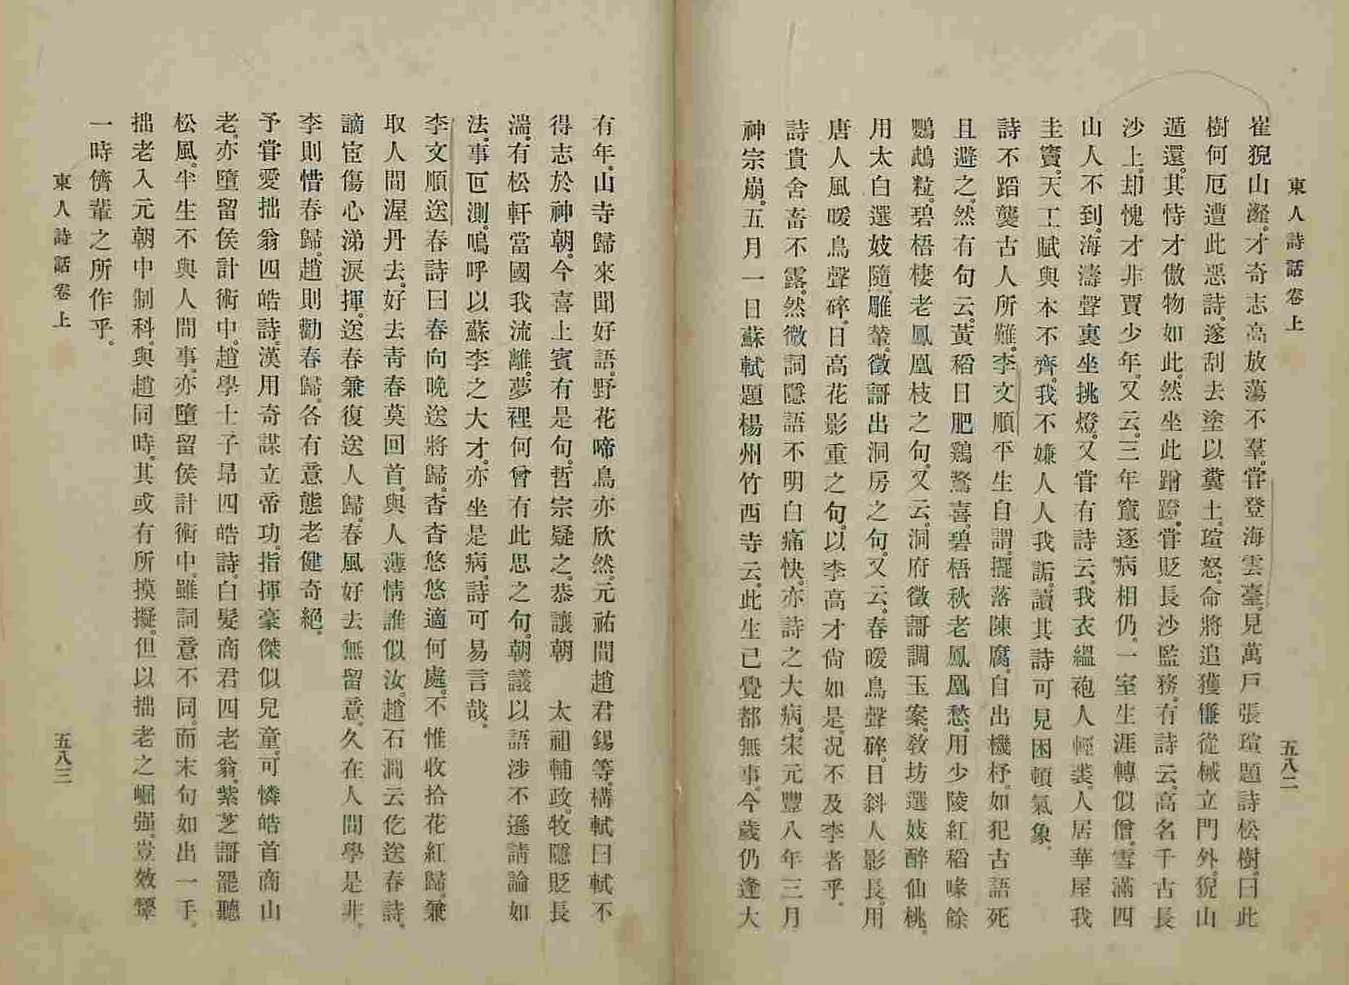 東人詩話卷上
五八二
崔猊山瀣。才奇志高放蕩不羣。甞登海雲臺。見萬戶張瑄題詩松樹。曰此
樹何厄遭此惡詩。遂刮去塗以糞土。瑄怒。命將追獲傔從械立門外。猊山
遁還。其恃才傲物如此。然坐此蹭蹬。甞貶長沙監務。有詩云。高名千古長
沙上。却愧才非賈少年。又云。三年竄逐病相仍。一室生涯轉似僧。雪滿四
山人不到。海濤聲裏坐挑燈。又甞有詩云。我衣縕袍人輕裘。人居華屋我
圭竇。天工賦與本不齊。我不嫌人人我詬。讀其詩可見困頓氣象。
詩不蹈襲古人所難。李文順平生自謂。擺落陳腐。自出機杼。如犯古語死
且避之。然有句云。黃稻日肥鷄鶩喜。碧梧秋老鳳凰愁。用少陵紅稻啄餘
鸚鵡粒。碧梧棲老鳳凰枝之句。又云。洞府徵謌調玉案。敎坊選妓醉仙桃。
用太白選妓隨雕輦。徵謌出洞房之句。又云。春暖鳥聲碎。日斜人影長。用
唐人風暖鳥聲碎。日高花影重之句。以李高才尙如是。况不及李者乎。
詩貴舍畜不露。然微詞隱語不明白痛快。亦詩之大病。宋元豐八年三月
神宗崩。五月一日蘇軾題楊州竹西寺云。此生已覺都無事。今歲仍逢大
有年。山寺歸來聞好語。野花啼鳥亦欣然。元祐間趙君錫等。構軾曰軾不
得志於神朝。今喜上賓有是句。哲宗疑之。恭讓朝　太祖輔政。牧隱貶長
湍。有松軒當國我流離。夢裡何曾有此思之句。朝議以語涉不遜。請論如
法。事叵測。嗚呼以蘇李之大才。亦坐是病。詩可易言哉。
李文順送春詩曰春向晚送將歸。杳杳悠悠適何處。不惟收拾花紅歸。兼
取人間渥丹去。好去靑春莫回首。與人薄情誰似汝。趙石澗云佗送春詩。
謫宦傷心涕淚揮。送春兼復送人歸。春風好去無留意。久在人間學是非。
李則惜春歸。趙則勸春歸。各有意態老健奇絕。
予甞愛拙翁四皓詩。漢用奇謀立帝功。指揮豪傑似兒童。可憐皓首商山
老。亦墮留侯計術中。趙學士子昻四皓詩。白髮商君四老翁。紫芝謌罷聽
松風。半生不與人間事。亦墮留侯計術中。雖詞意不同。而末句如出一手。
拙老入元朝中制科。與趙同時。其或有所摸擬。但以拙老之崛强。豈效顰
一時儕輩之所作乎。
東人詩話卷上
五八三